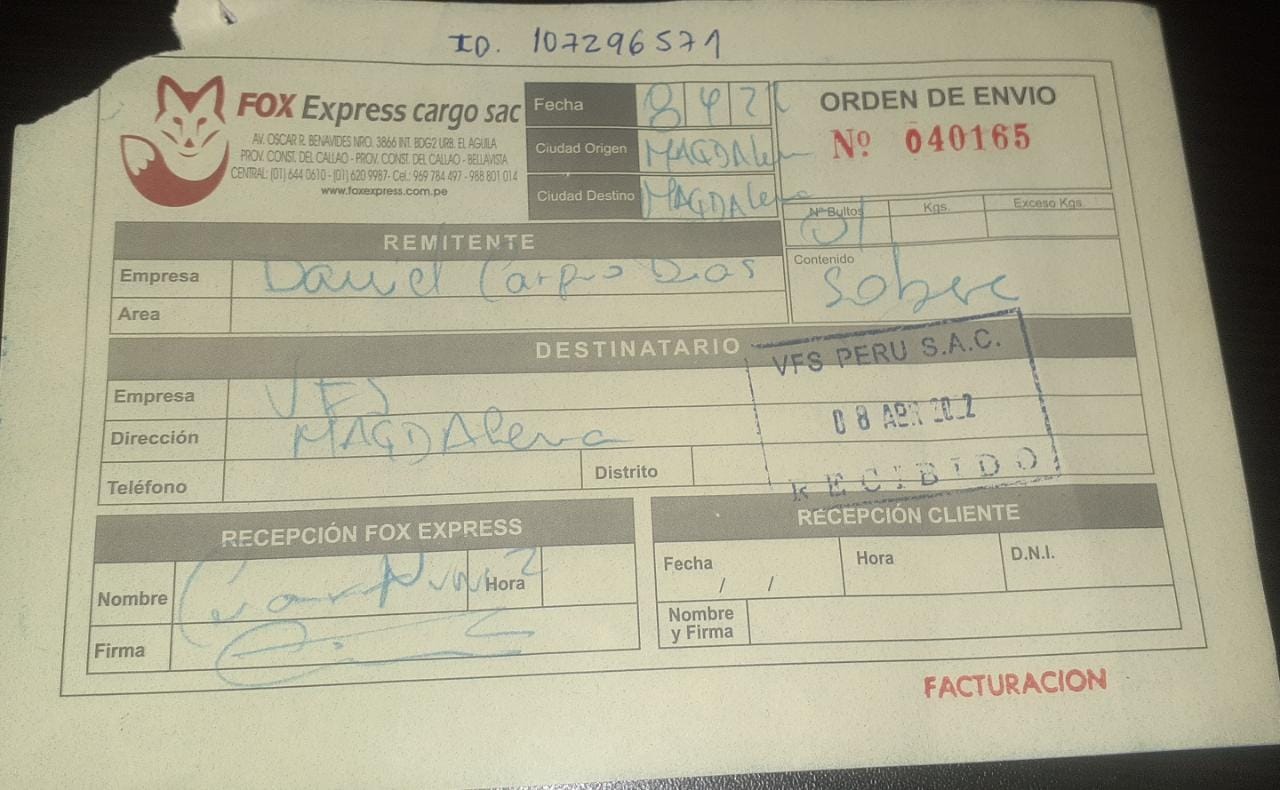 ID. 107296571
FOX Express cargo sac
AV. OSCAR R. BENAVIDES NRO. 3866 INT. BDG2 URB. EL AGUILA
PROV. CONST. DEL CALLAO - PROV. CONST. DEL CALLAO - BELLAVISTA
CENTRAL: (01) 644 0610 - (01) 620 9987- Cel.: 969 784 497 - 988 801 014
www.foxexpress.com.pe
Fecha 8 4 2
Ciudad Origen MAGDAlena
Ciudad Destino MAGDAlena
ORDEN DE ENVIO
Nº 040165
Nº Bultos Kgs. Exceso Kgs.
01
Contenido
Sobre
REMITENTE
Empresa Daniel Carpio Dias
Area
DESTINATARIO
Empresa VFS
Dirección MAGDAlena
Teléfono Distrito
VFS PERU S.A.C.
08 APR 2022
RECIBIDO
RECEPCIÓN FOX EXPRESS
Nombre Hora
Firma
RECEPCIÓN CLIENTE
Fecha / / Hora D.N.I.
Nombre
y Firma
FACTURACION